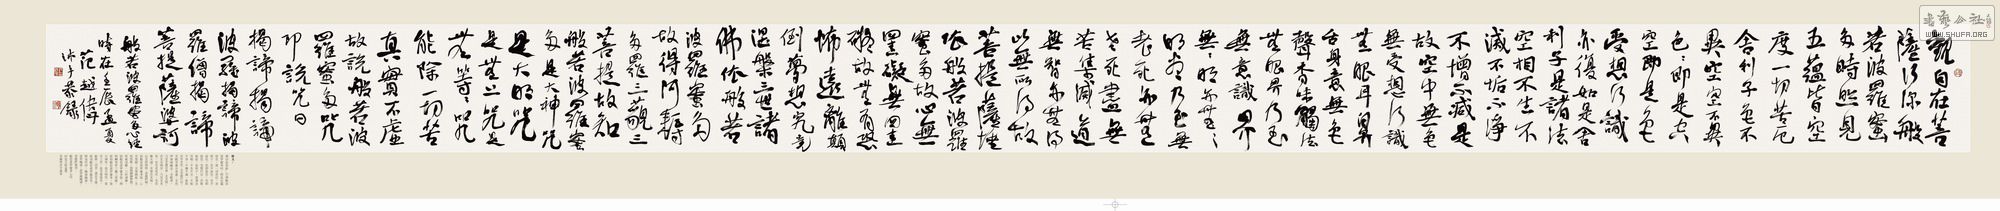 觀自在菩
薩行深般
若波羅蜜
多時照見
五蘊皆空
度一切苦厄
舍利子色不
異空空不異
色色即是空
空即是色
受想行識
亦復如是舍
利子是諸法
空相不生不
滅不垢不淨
不增不減是
故空中無色
無受想行識
無眼耳鼻
舌身意無色
聲香味觸法
無眼界乃至
無意識界
無無明亦無
無明盡乃至無
老死亦無
老死盡無
苦集滅道
無智亦無得
以無所得故
菩提薩埵
依般若波羅
蜜多故心無
罣礙無罣
礙故無有恐
怖遠離顛
倒夢想究竟
涅槃三世諸
佛依般若
波羅蜜多
故得阿耨
多羅三藐三
菩提故知
般若波羅蜜
多是大神咒
是大明咒
是無上咒是
無等等咒
能除一切苦
真實不虛
故說般若波
羅蜜多咒
即說咒曰
揭諦揭諦
波羅揭諦波
羅僧揭諦
菩提薩婆訶
般若波羅蜜多心經
時在壬辰孟夏
范越偉
沐手恭錄
WWW.SHUFA.ORG